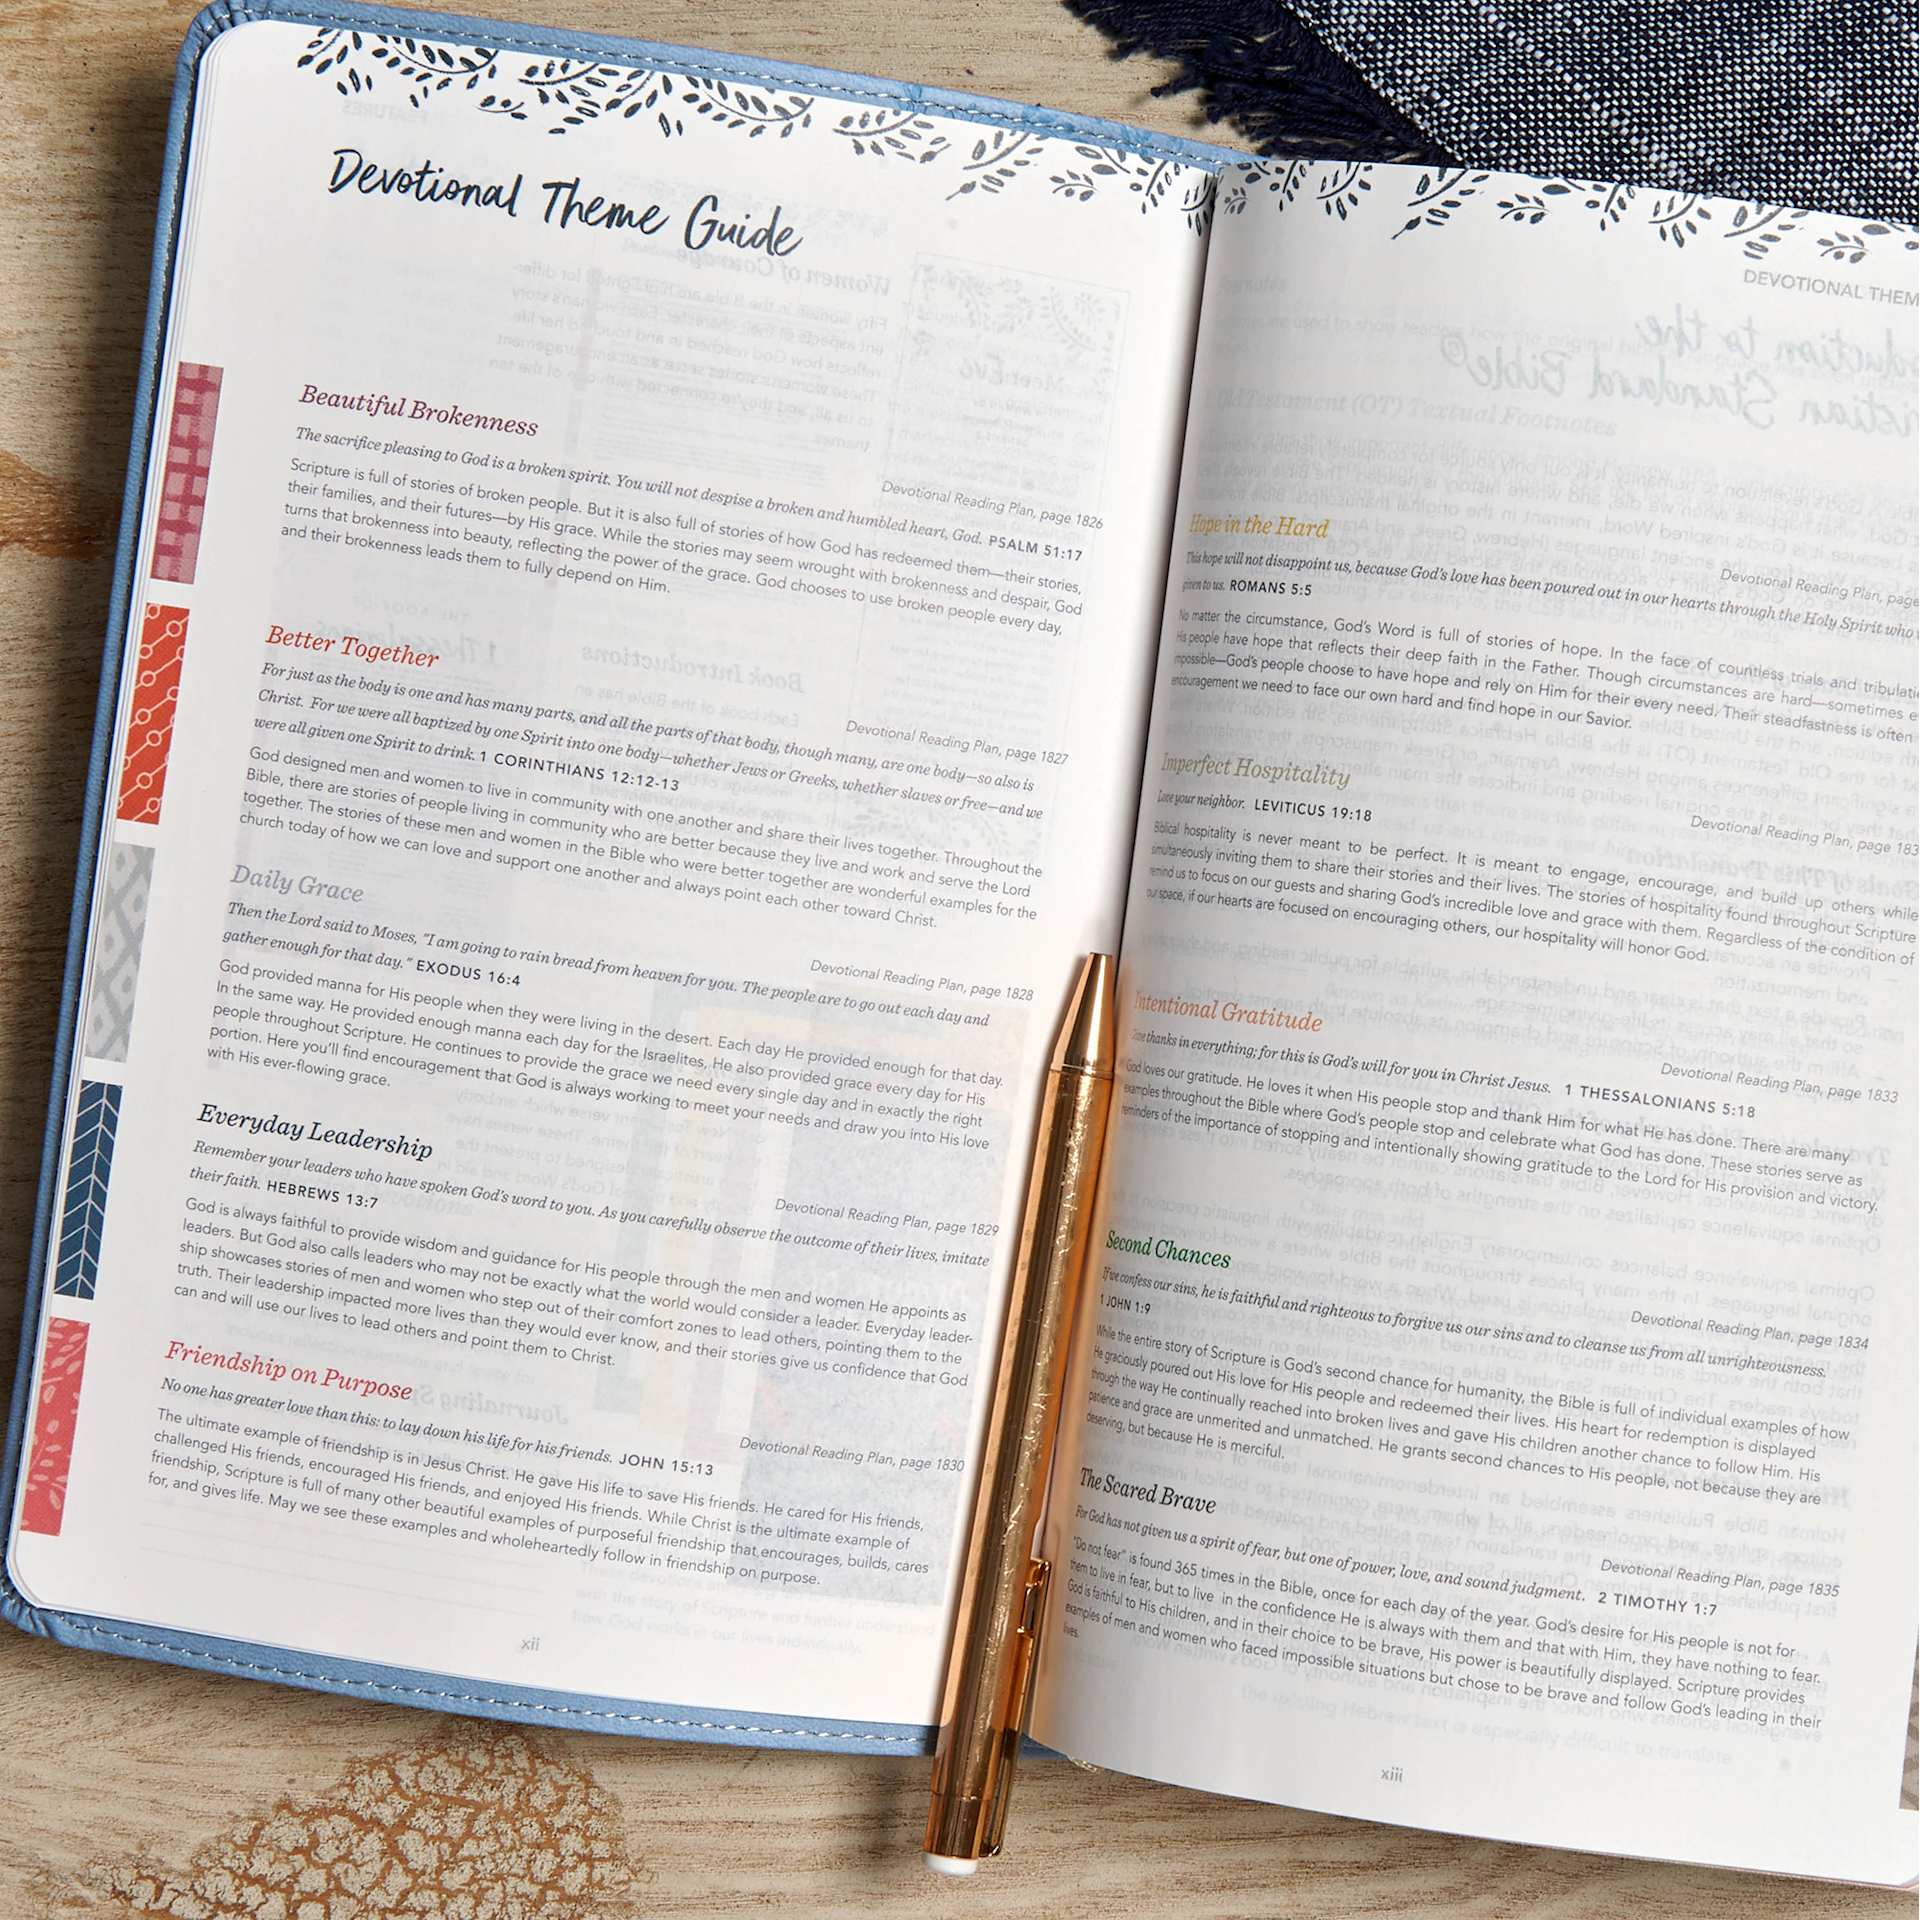 Devotional Theme Guide
Beautiful Brokenness
Devotional Reading Plan, page 1826
The sacrifice pleasing to God is a broken spirit. You will not despise a broken and humbled heart, God. PSALM 51:17
Scripture is full of stories of broken people. But it is also full of stories of how God has redeemed them—their stories,
their families, and their futures—by His grace. While the stories may seem wrought with brokenness and despair, God
turns that brokenness into beauty, reflecting the power of the grace. God chooses to use broken people every day,
and their brokenness leads them to fully depend on Him.
Better Together
Devotional Reading Plan, page 1827
For just as the body is one and has many parts, and all the parts of that body, though many, are one body—so also is
Christ. For we were all baptized by one Spirit into one body—whether Jews or Greeks, whether slaves or free—and we
were all given one Spirit to drink. 1 CORINTHIANS 12:12-13
God designed men and women to live in community with one another and share their lives together. Throughout the
Bible, there are stories of people living in community who are better because they live and work and serve the Lord
together. The stories of these men and women in the Bible who were better together are wonderful examples for the
church today of how we can love and support one another and always point each other toward Christ.
Daily Grace
Devotional Reading Plan, page 1828
Then the Lord said to Moses, "I am going to rain bread from heaven for you. The people are to go out each day and
gather enough for that day." EXODUS 16:4
God provided manna for His people when they were living in the desert. Each day He provided enough for that day.
In the same way. He provided enough manna each day for the Israelites, He also provided grace every day for His
people throughout Scripture. He continues to provide the grace we need every single day and in exactly the right
portion. Here you'll find encouragement that God is always working to meet your needs and draw you into His love
with His ever-flowing grace.
Everyday Leadership
Devotional Reading Plan, page 1829
Remember your leaders who have spoken God's word to you. As you carefully observe the outcome of their lives, imitate
their faith. HEBREWS 13:7
God is always faithful to provide wisdom and guidance for His people through the men and women He appoints as
leaders. But God also calls leaders who may not be exactly what the world would consider a leader. Everyday leader-
ship showcases stories of men and women who step out of their comfort zones to lead others, pointing them to the
truth. Their leadership impacted more lives than they would ever know, and their stories give us confidence that God
can and will use our lives to lead others and point them to Christ.
Friendship on Purpose
Devotional Reading Plan, page 1830
No one has greater love than this: to lay down his life for his friends. JOHN 15:13
The ultimate example of friendship is in Jesus Christ. He gave His life to save His friends. He cared for His friends,
challenged His friends, encouraged His friends, and enjoyed His friends. While Christ is the ultimate example of
friendship, Scripture is full of many other beautiful examples of purposeful friendship that encourages, builds, cares
for, and gives life. May we see these examples and wholeheartedly follow in friendship on purpose.
xii
DEVOTIONAL THEM
Hope in the Hard
Devotional Reading Plan, page
This hope will not disappoint us, because God's love has been poured out in our hearts through the Holy Spirit who
given to us. ROMANS 5:5
No matter the circumstance, God's Word is full of stories of hope. In the face of countless trials and tribulati
His people have hope that reflects their deep faith in the Father. Though circumstances are hard—sometimes e
impossible—God's people choose to have hope and rely on Him for their every need. Their steadfastness is often
encouragement we need to face our own hard and find hope in our Savior.
Imperfect Hospitality
Devotional Reading Plan, page 183
Love your neighbor. LEVITICUS 19:18
Biblical hospitality is never meant to be perfect. It is meant to engage, encourage, and build up others while
simultaneously inviting them to share their stories and their lives. The stories of hospitality found throughout Scripture
remind us to focus on our guests and sharing God's incredible love and grace with them. Regardless of the condition of
our space, if our hearts are focused on encouraging others, our hospitality will honor God.
Intentional Gratitude
Devotional Reading Plan, page 1833
Give thanks in everything; for this is God's will for you in Christ Jesus. 1 THESSALONIANS 5:18
God loves our gratitude. He loves it when His people stop and thank Him for what He has done. There are many
examples throughout the Bible where God's people stop and celebrate what God has done. These stories serve as
reminders of the importance of stopping and intentionally showing gratitude to the Lord for His provision and victory.
Second Chances
Devotional Reading Plan, page 1834
If we confess our sins, he is faithful and righteous to forgive us our sins and to cleanse us from all unrighteousness.
1 JOHN 1:9
While the entire story of Scripture is God's second chance for humanity, the Bible is full of individual examples of how
He graciously poured out His love for His people and redeemed their lives. His heart for redemption is displayed
through the way He continually reached into broken lives and gave His children another chance to follow Him. His
patience and grace are unmerited and unmatched. He grants second chances to His people, not because they are
deserving, but because He is merciful.
The Scared Brave
Devotional Reading Plan, page 1835
For God has not given us a spirit of fear, but one of power, love, and sound judgment. 2 TIMOTHY 1:7
"Do not fear" is found 365 times in the Bible, once for each day of the year. God's desire for His people is not for
them to live in fear, but to live in the confidence He is always with them and that with Him, they have nothing to fear.
God is faithful to His children, and in their choice to be brave, His power is beautifully displayed. Scripture provides
examples of men and women who faced impossible situations but chose to be brave and follow God's leading in their
lives.
xiii